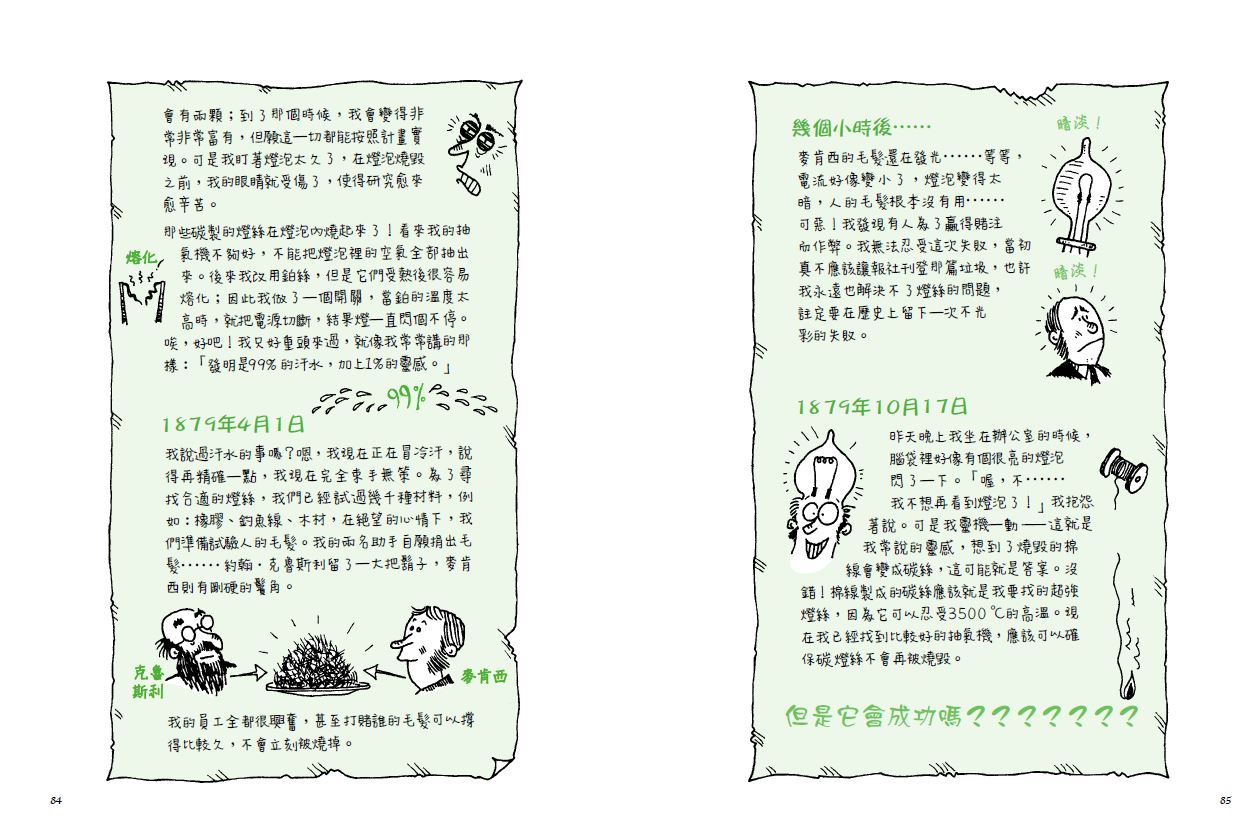 會有兩顆；到了那個時候，我會變得非
常非常富有，但願這一切都能按照計畫實
現。可是我盯著燈泡太久了，在燈泡燒毀
之前，我的眼睛就受傷了，使得研究愈來
愈辛苦。
那些碳製的燈絲在燈泡內燒起來了！看來我的抽
氣機不夠好，不能把燈泡裡的空氣全部抽出
來。後來我改用鉑絲，但是它們受熱後很容易
熔化；因此我做了一個開關，當鉑的溫度太
高時，就把電源切斷，結果燈一直閃個不停。
唉，好吧！我只好重頭來過，就像我常常講的那
樣：「發明是99%的汗水，加上1%的靈感。」
熔化
99%
1879年4月1日
我說過汗水的事嗎？嗯，我現在正在冒冷汗，說
得再精確一點，我現在完全束手無策。為了尋
找合適的燈絲，我們已經試過幾千種材料，例
如：橡膠、釣魚線、木材，在絕望的心情下，我
們準備試驗人的毛髮。我的兩名助手自願捐出毛
髮⋯⋯約翰・克魯斯利留了一大把鬍子，麥肯
西則有剛硬的鬢角。
克魯
斯利
麥肯西
我的員工全都很興奮，甚至打賭誰的毛髮可以撐
得比較久，不會立刻被燒掉。
84
幾個小時後⋯⋯
暗淡！
麥肯西的毛髮還在發光⋯⋯等等，
電流好像變小了，燈泡變得太
暗，人的毛髮根本沒有用⋯⋯
可惡！我發現有人為了贏得賭注
而作弊。我無法忍受這次失敗，當初
真不應該讓報社刊登那篇垃圾，也許
我永遠也解決不了燈絲的問題，
註定要在歷史上留下一次不光
彩的失敗。
暗淡！
1879年10月17日
昨天晚上我坐在辦公室的時候，
腦袋裡好像有個很亮的燈泡
閃了一下。「喔，不⋯⋯
我不想再看到燈泡了！」我抱怨
著說。可是我靈機一動——這就是
我常說的靈感，想到了燒毀的棉
線會變成碳絲，這可能就是答案。沒
錯！棉線製成的碳絲應該就是我要找的超強
燈絲，因為它可以忍受3500℃的高溫。現
在我已經找到比較好的抽氣機，應該可以確
保碳燈絲不會再被燒毀。
但是它會成功嗎？？？？？？？
85